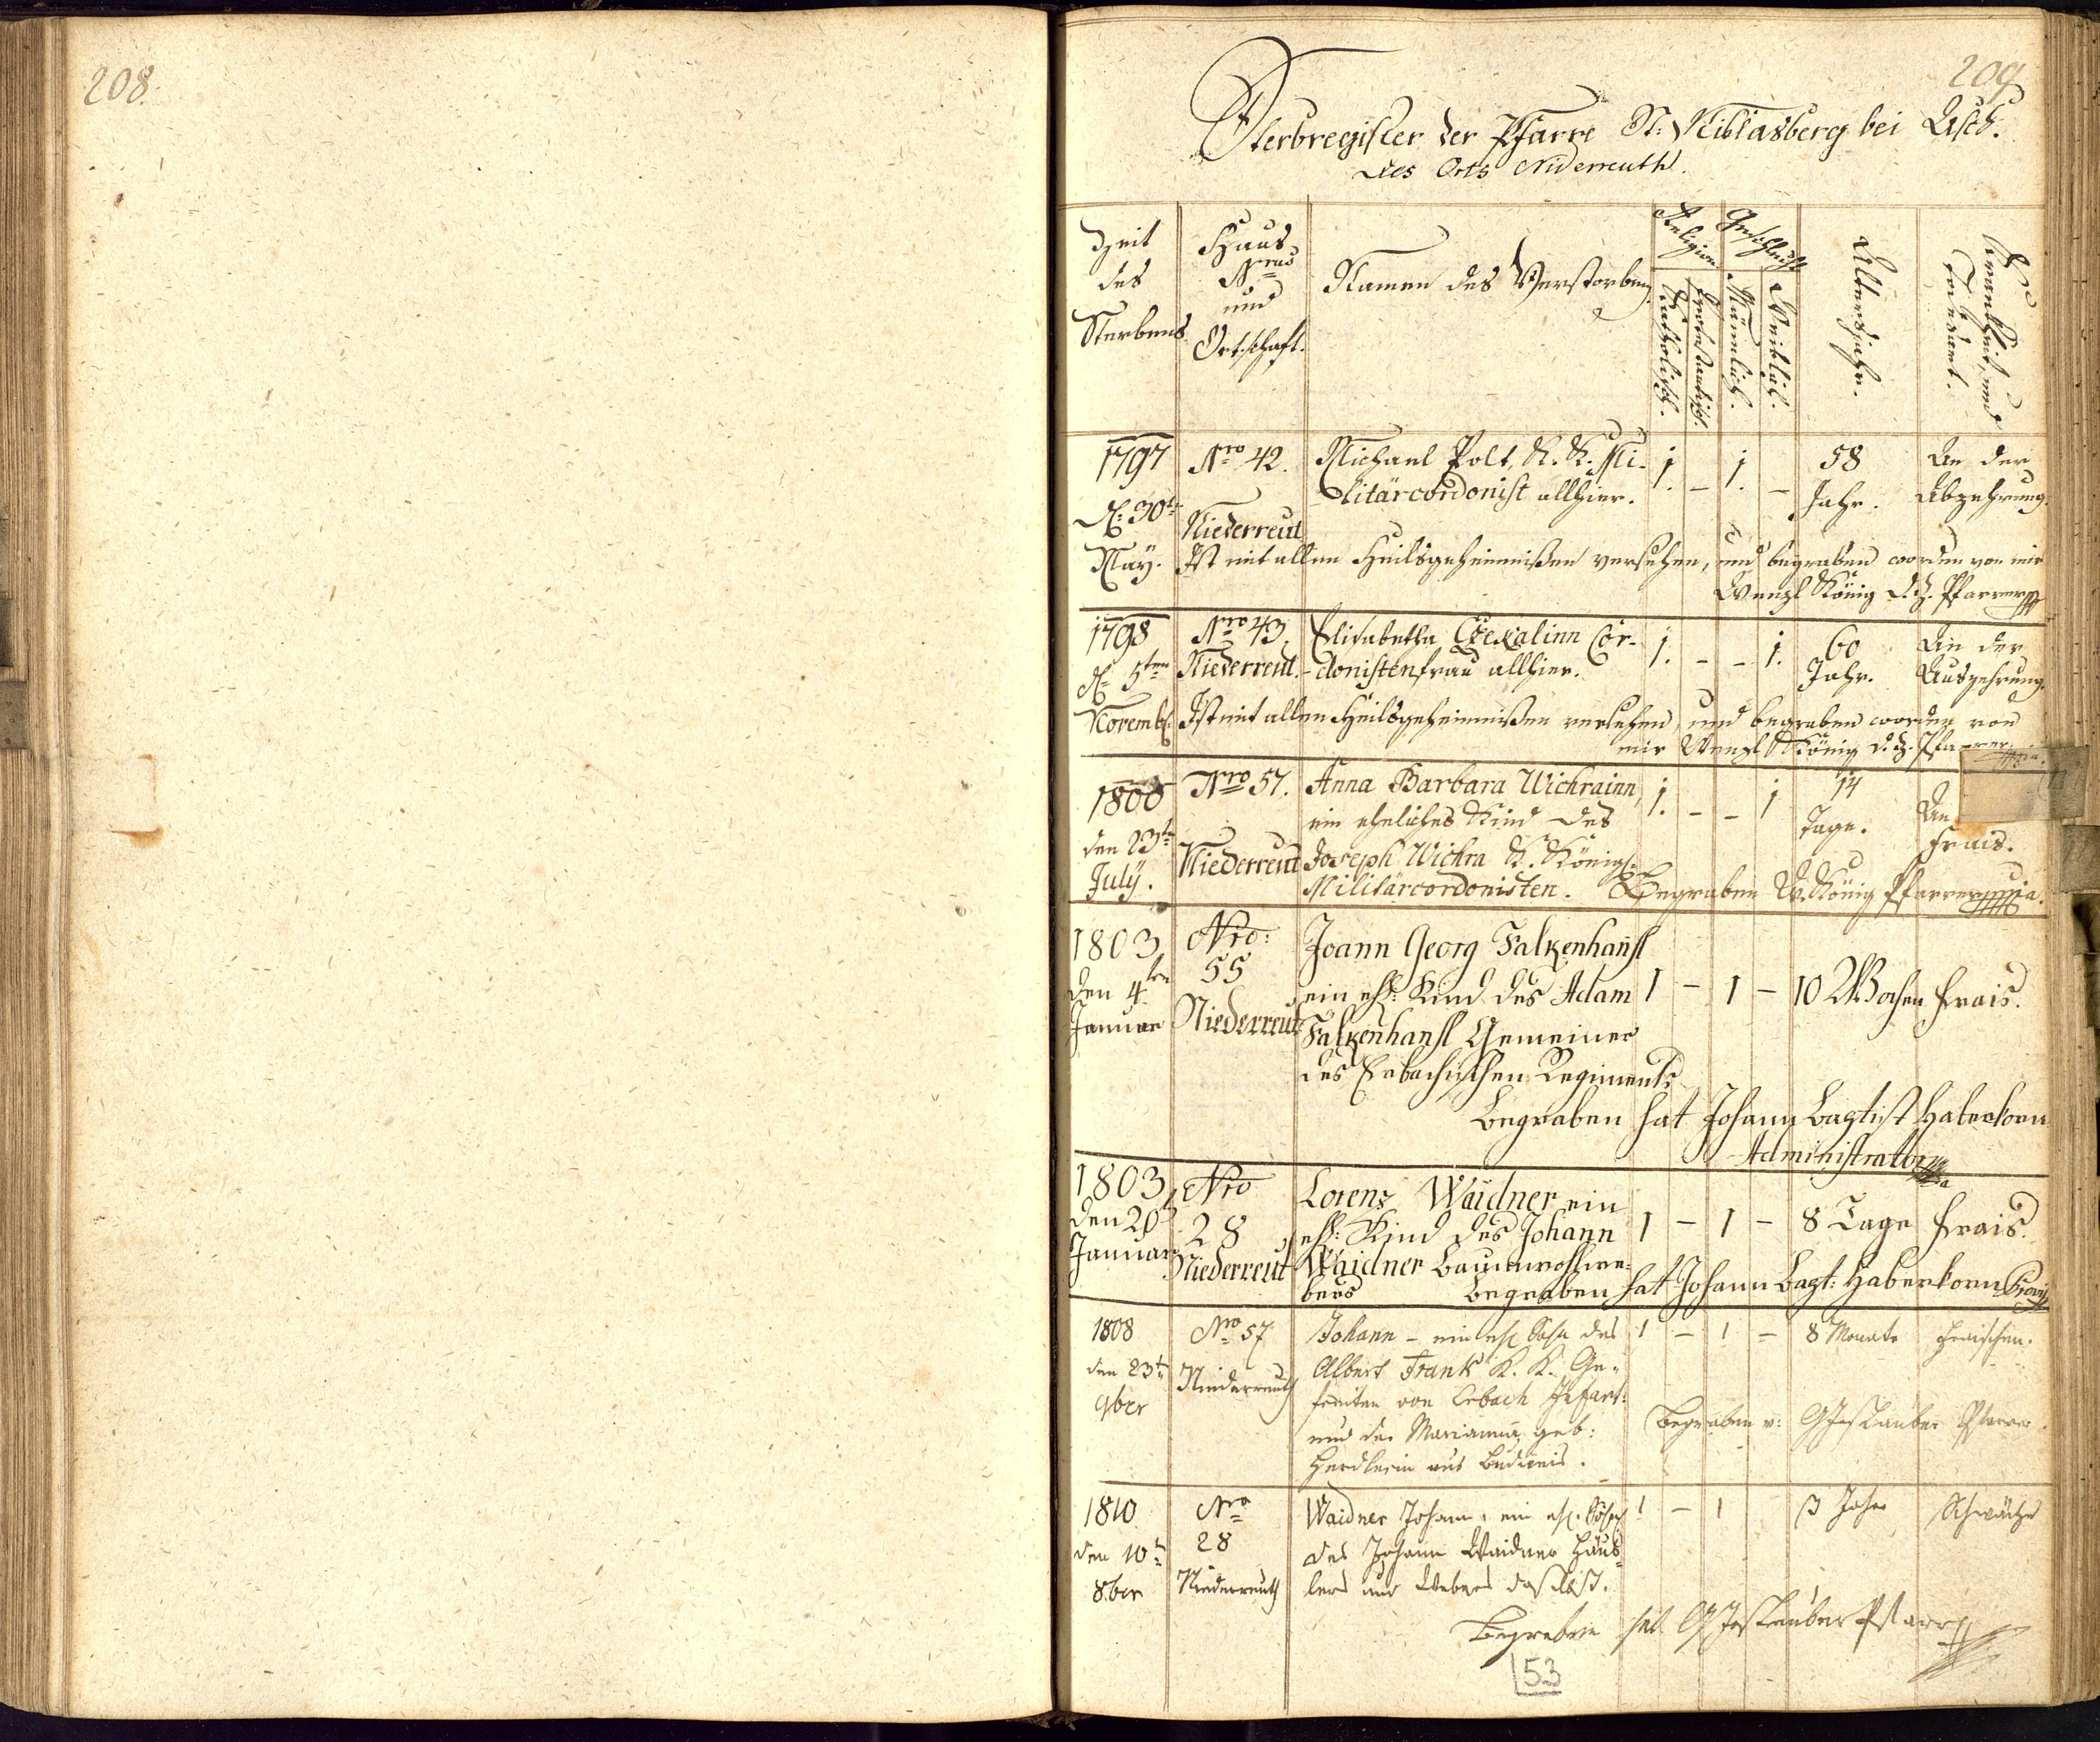 208.
209
Sterbregister der Pfarre St: Niklasberg bei Asch.
des Orts Niderreuth.
Zeit des Sterbens
Haus Nrus und Ortschaft.
Namen des Verstorbenen
Religion
Katholisch.
Protestantisch.
Geschlecht
Männlich.
Weiblich.
Altersjahr.
Krankheit, und Todesart.
1797 Nro 42. Michael Polt, K. K. Mi- 1. – 1. – 58 An der
litärcordonist allhier. Jahr. Abzehrung.
d: 30t Niederreut
May. Ist mit allen Heilsgeheimnißen versehen, und begraben worden von mir
Wenzl König d. Z. Pfarrer
1798 Nro 43. Elisabetha Cor- 1. – – 1. 60 An der
d 5ten Niederreut. donistenfrau allhier. Jahr. Auszehrung.
Novemb. Ist mit allen Heilsgeheimnißen versehen, und begraben worden von
mir Wenzl König d. Z. Pfarrer
1800 Nro 57. Anna Barbara Wichrainn, 1. – – 1 14 An
ein eheliches Kind des Tage. Frais.
den 23t Niederreut Joseph Wichra K. Königl.
July. Militärcordonisten. Begraben W. König Pfarrer
1803 Nro: Joann Georg Falkenhansl
den 4ten 55 ein ehl: Kind des Adam 1 – 1 – 10 Wochen Frais.
Januar Niederreut Falkenhansl Gemeiner
des Erbachischen Regiments
Begraben hat Johann Baptist Haberkorn
Administrator
1803 Nro Lorenz Waidner ein
den 20 28 ehl: Kind des Johann 1 – 1 – 8 Tage Frais.
Januar Niederreut Waidner Baumwollwe-
bers Begraben hat Johann Bapt: Haberkorn
1808 Nro 57 Johann – ein ehl Sohn des 1 – 1 – 8 Monate Fraischen.
den 23t Niederreuth Albert Frank K. K. Ge-
9ber freiten von Erbach Infant:
und der Marianna, geb: Begraben v: Pfarrer.
aus Budweis.
1810 Nro Waidner Johann, ein ehl. Söhnl 1 – 1 3 Jahr Schwäche
den 10t 28 des Johann Waidner Häus-
8ber Niederreuth lers und Webers daselbst.
Begraben hat Pfarrer
53